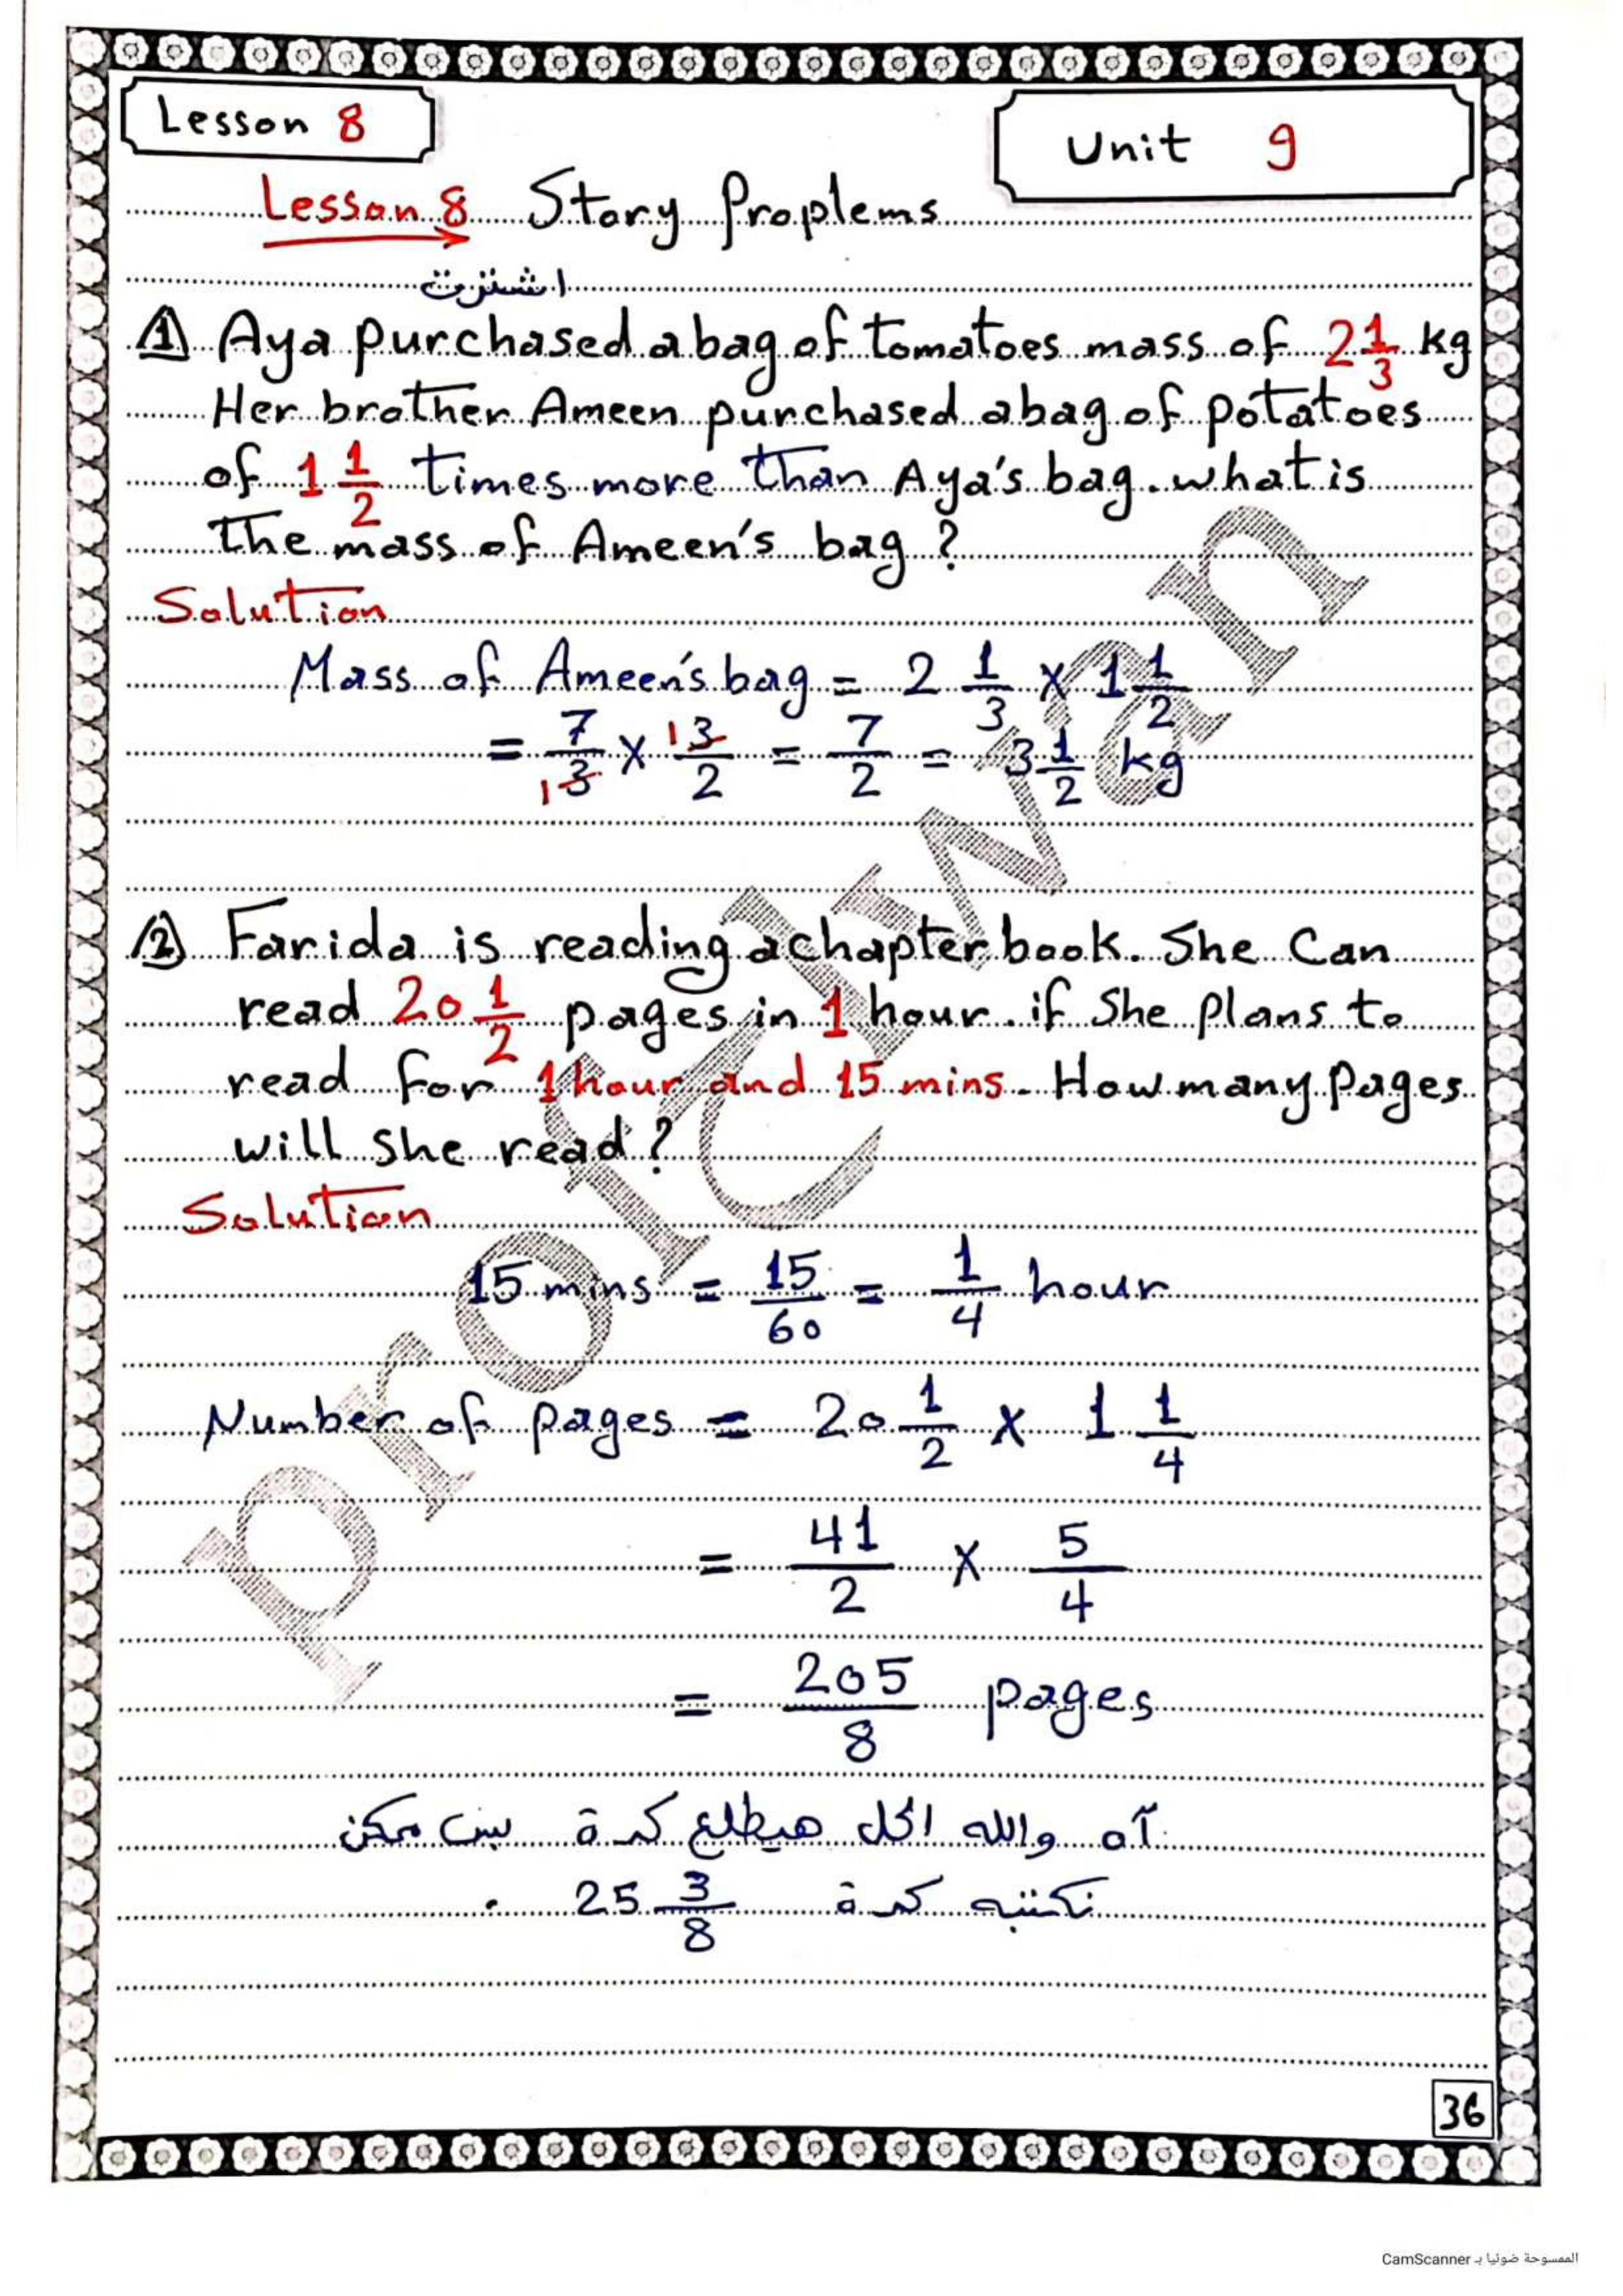 Lesson 8
Unit 9
Lesson 8 Story Proplems
اشترت
1 Aya purchased a bag of tomatoes mass of 2 1/3 kg
Her brother Ameen purchased a bag of potatoes
of 1 1/2 times more than Aya's bag. what is
the mass of Ameen's bag ?
Solution
Mass of Ameen's bag = 2 1/3 x 1 1/2
= 7/3 1 x 1 3/2 = 7/2 = 3 1/2 kg
2 Farida is reading a chapter book. She Can
read 20 1/2 pages in 1 hour. if She Plans to
read for 1 hour and 15 mins. How many Pages
will she read ?
Solution
15 mins = 15/60 = 1/4 hour
Number of pages = 20 1/2 x 1 1/4
= 41/2 x 5/4
= 205/8 pages
آه والله الحل هيطلع كدة بس ممكن
نكتبه كدة 25 3/8 .
36
الممسوحة ضوئيا بـ CamScanner